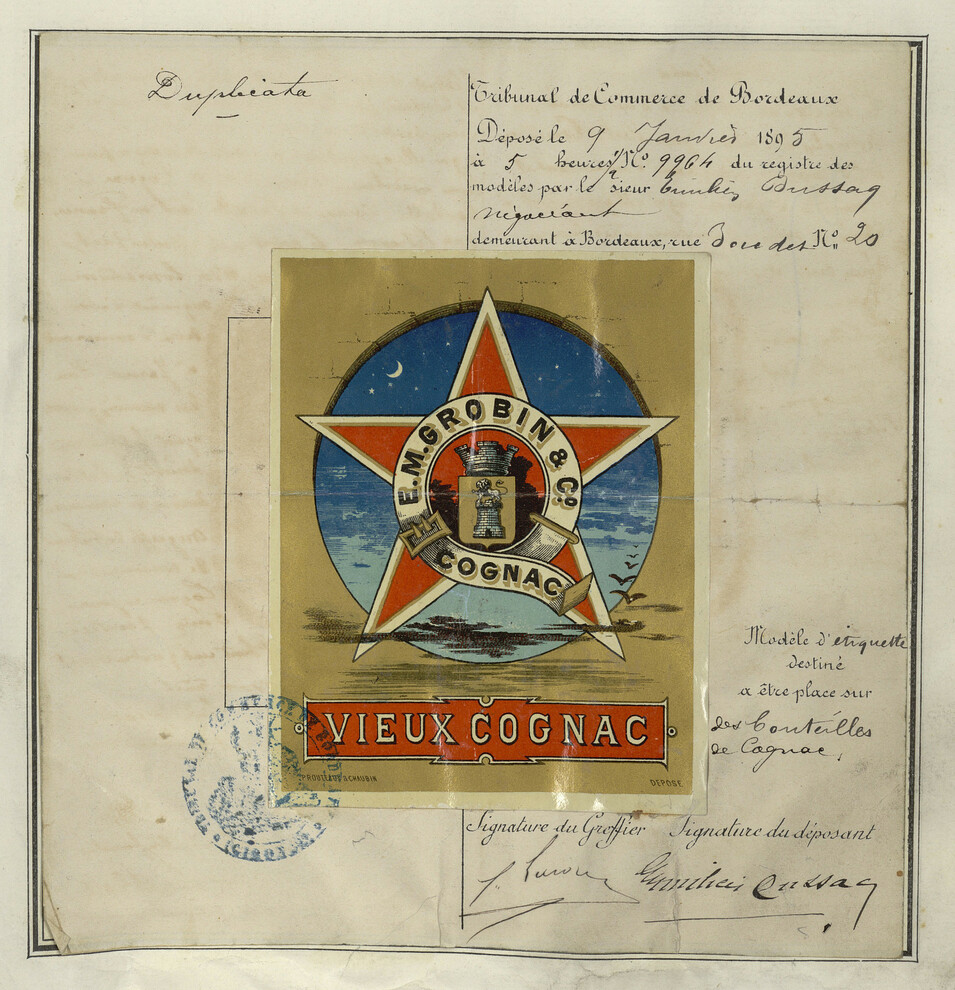 Duplicata
Tribunal de Commerce de Bordeaux
Déposé le 9 Janvier 1895
à 5 heures Nº 9964 du registre des
modèles par le sieur Emilien Dussaq
négociant
demeurant à Bordeaux, rue Nº 20
E. M. GROBIN & Cº
COGNAC
VIEUX COGNAC
PROUTEAUX & CHAUBIN
DEPOSE
Modèle d'étiquette
destiné
a être place sur
des bouteilles
de Cognac
TRIBUNAL DE COMMERCE DE BORDEAUX
(GIRONDE)
Signature du Greffier Signature du déposant
Emilien Dussaq